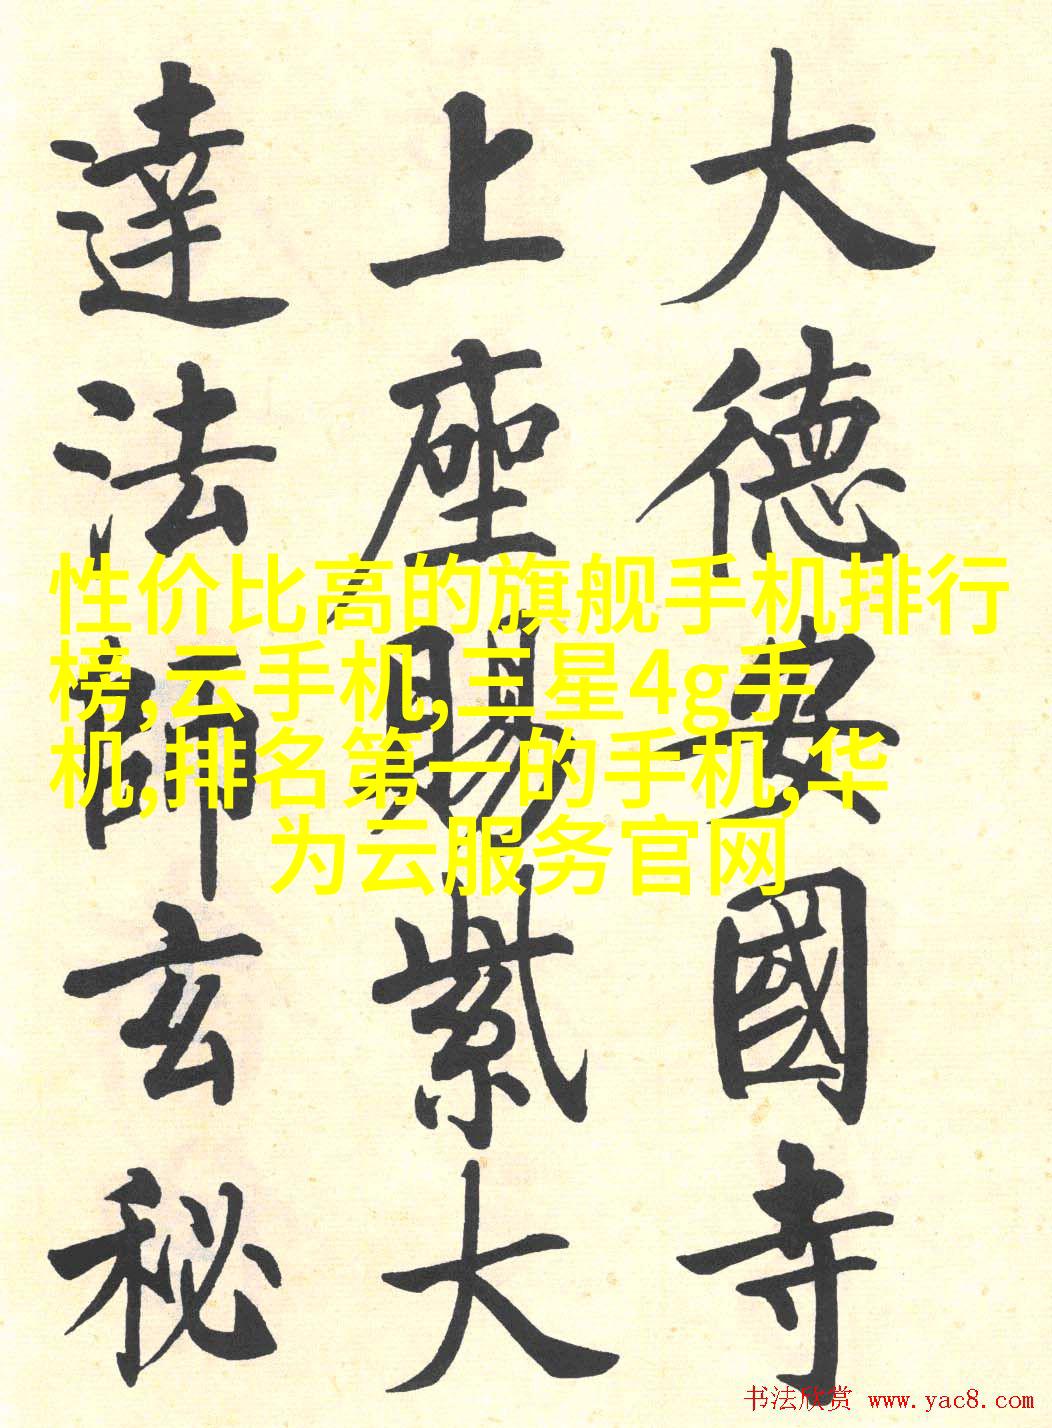 大德安國寺
上座賜紫大
達法師玄秘
性价比高的旗舰手机排行
榜,云手机,三星4g手
机,排名第一的手机,华
为云服务官网
书法欣赏 www.yac8.com